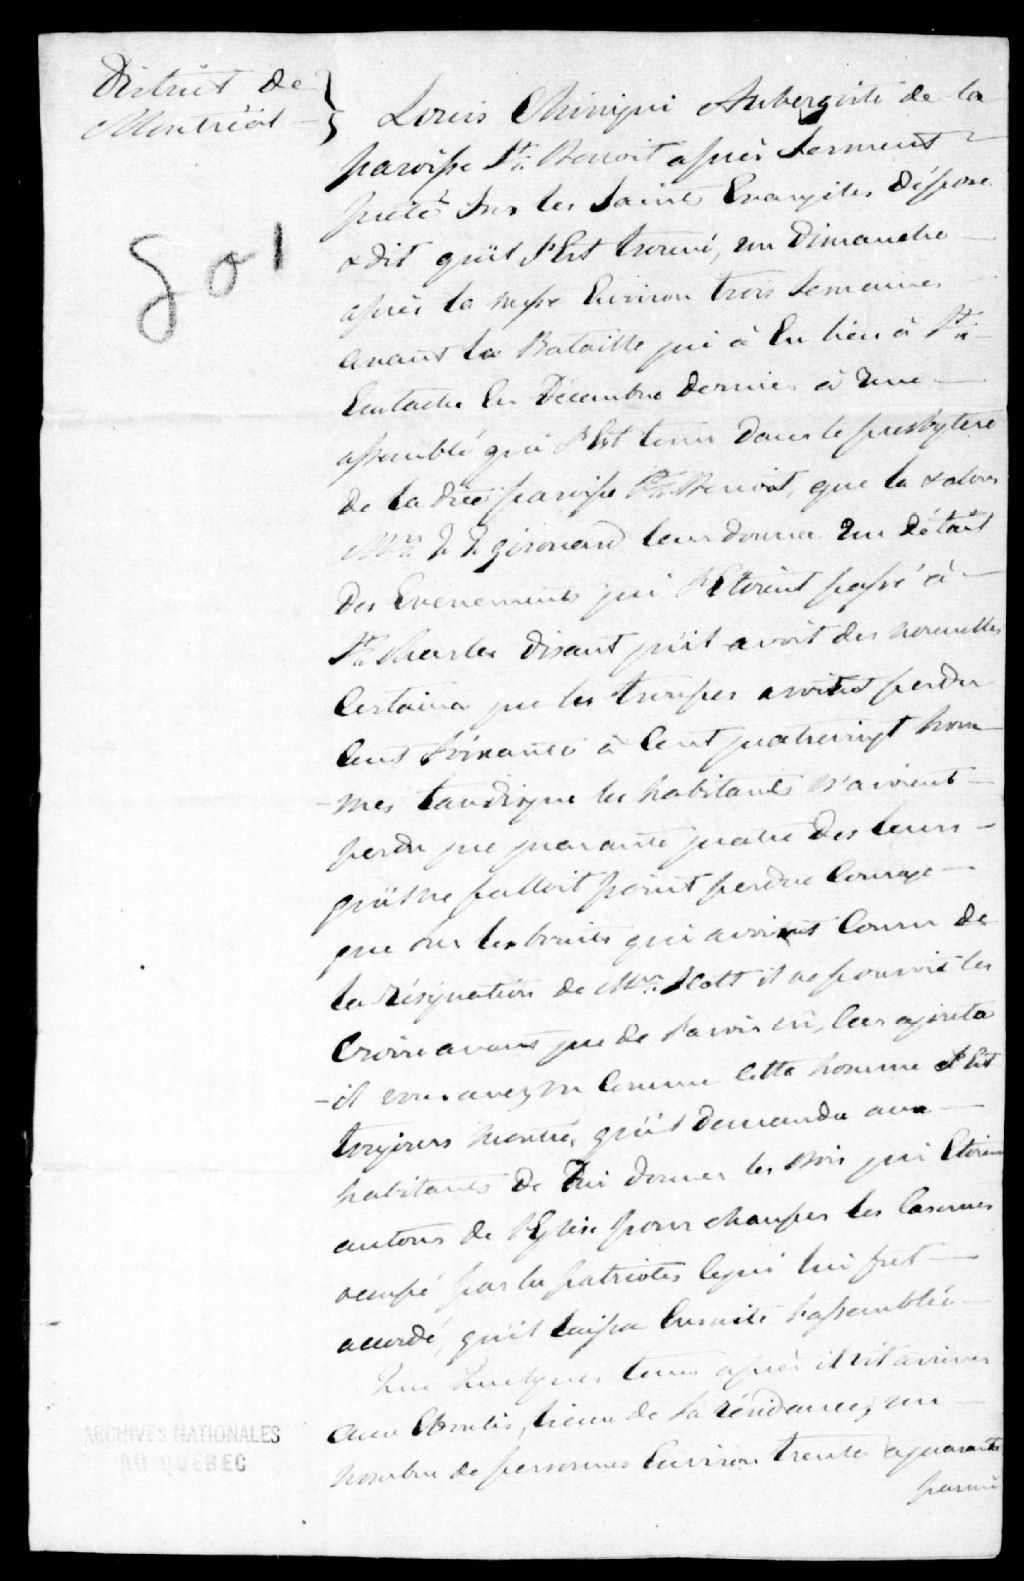 District de
Montréal
801
Louis Chiniqui Aubergiste de la
paroisse St. Benoit après Serment
preté Sur les Saints Evangiles dépose
& dit qu'il s'Est trouvé, un Dimanche
après la messe Environ trois Semaines
avant la Bataille qui à Eu lieu à St.
Eustache En Décembre dernier à une
assemblé qui s'Est tenu dans le presbytere
de la dite paroisse St. Benoit, que la & alors
Mr. J. J. girouard leur donna un détail
des Evenements qui s'Etoient passé à
St. Charles disant qu'il avoit des nouvelles
Certaines que les troupes avoient perdu
Cent Soixante à Cent quatrevingt hom
-mes tandisque les habitants n'avoient
perdu que quarante quatre des leurs
qu'il ne falloit point perdre Courage
que sur les bruits qui avoient Couru de
la résignation de Mr. Scott il ne pouvoit les
Croire avant que de l'avoir vû, Car ajouta
-il vous avez vu Comme Cette homme s'Est
toujours montré, qu'il demanda aux
habitants de lui donner les Bois qui Etoient
autour de l'Eglise pour chauffer les Casernes
ocupé par les patriotes Cequi lui fut
acordé, qu'il laissa Ensuite l'assemblée
Que Quelques tems après il vit arriver
aux Eboulis, lieu de Sa résidence, un
nombre de personnes Environ trente a quarante
parmi
ARCHIVES NATIONALES
DU QUEBEC